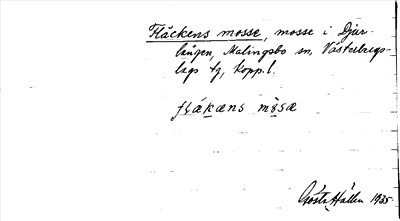 Fläckens mosse, mosse i Djur-
längen, Malingsbo sn, Västerbergs-
lags fg, Kopp.l.
flákæns mòsæ
Gösta Hallen 1935